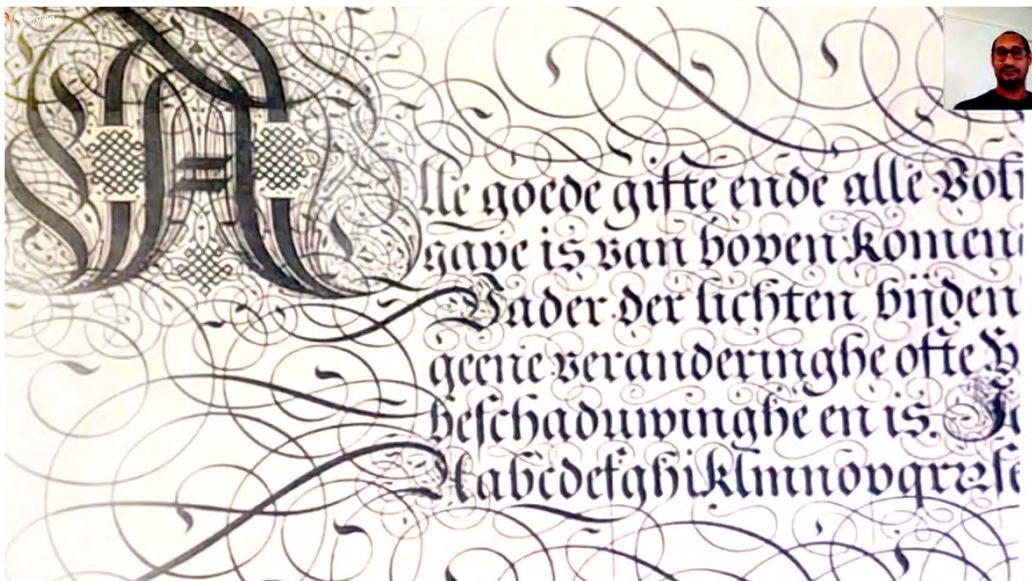 Recording
Alle goede gifte ende alle Vol
gave is van boven komen
Vader der lichten bijden
geene veranderinghe ofte
beschaduwinghe en is. Ja
Aabcdefghiklmnopqrrſs